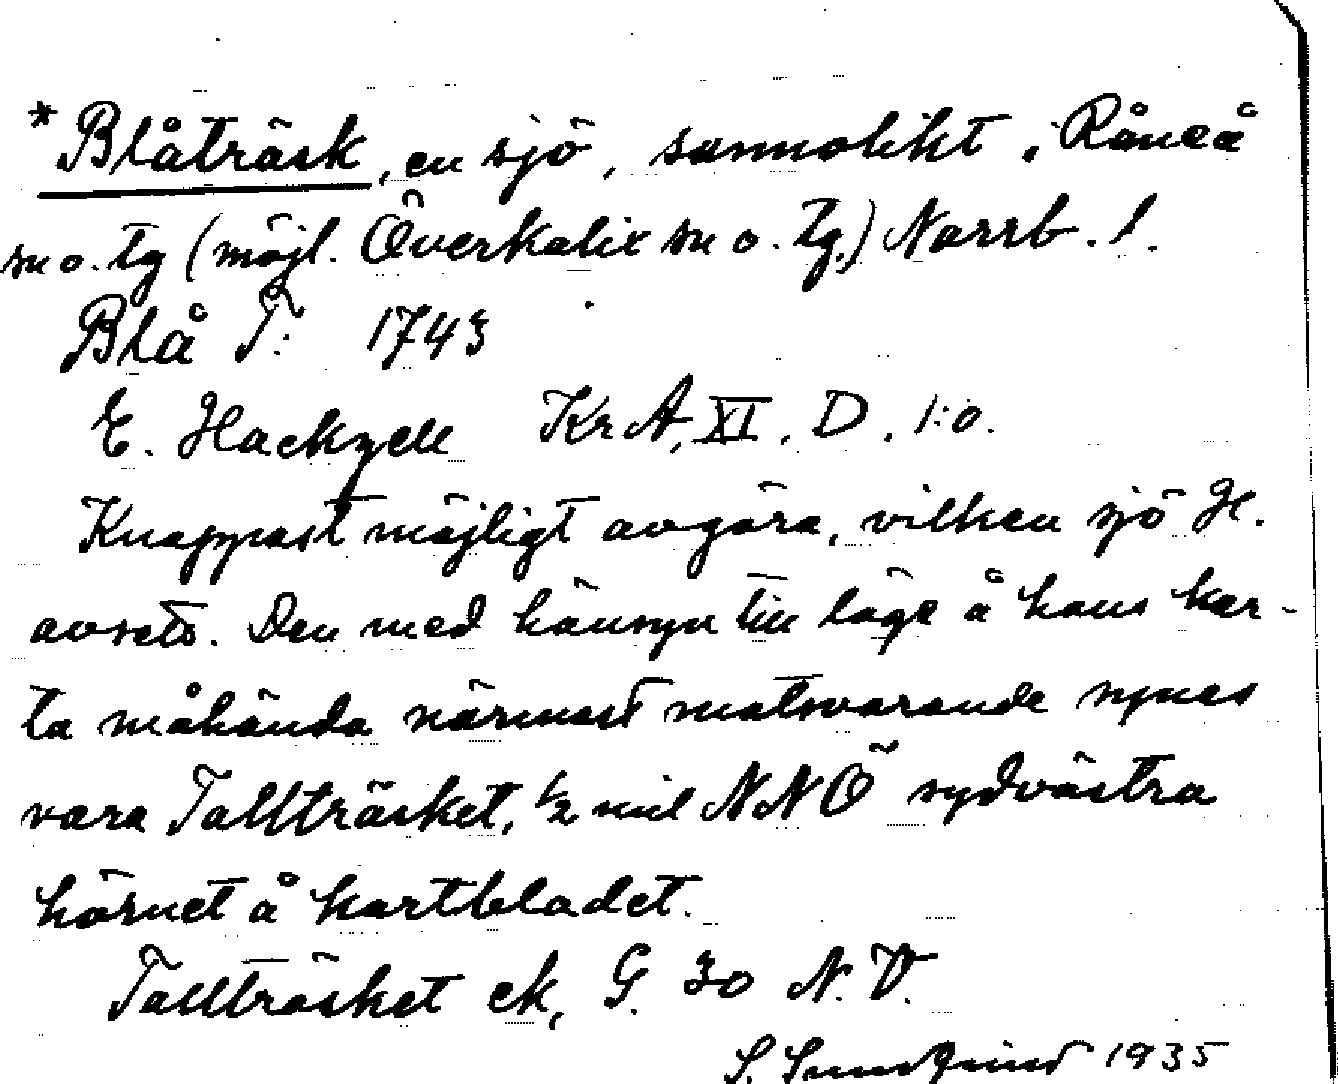 *Blåträsk, en sjö, sannolikt i Råneå
sn o. tg (möjl. Överkalix sn o. tg.) Norrb. l.
Blå T: 1743
E. Hackzell KrA, XI, D, 1:o.
Knappast möjligt avgöra, vilken sjö H.
avsett. Den med hänsyn till läge å hans kar-
ta måhända närmast motsvarande synes
vara Tallträsket, 1/2 mil NNÖ sydvästra
hörnet å kartbladet.
Tallträsket ek, G. 30 N.V.
S. 1935